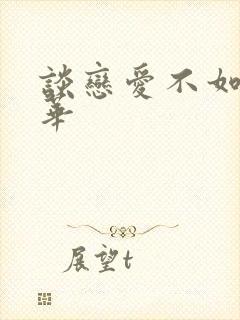 談戀愛不如
華
展望t